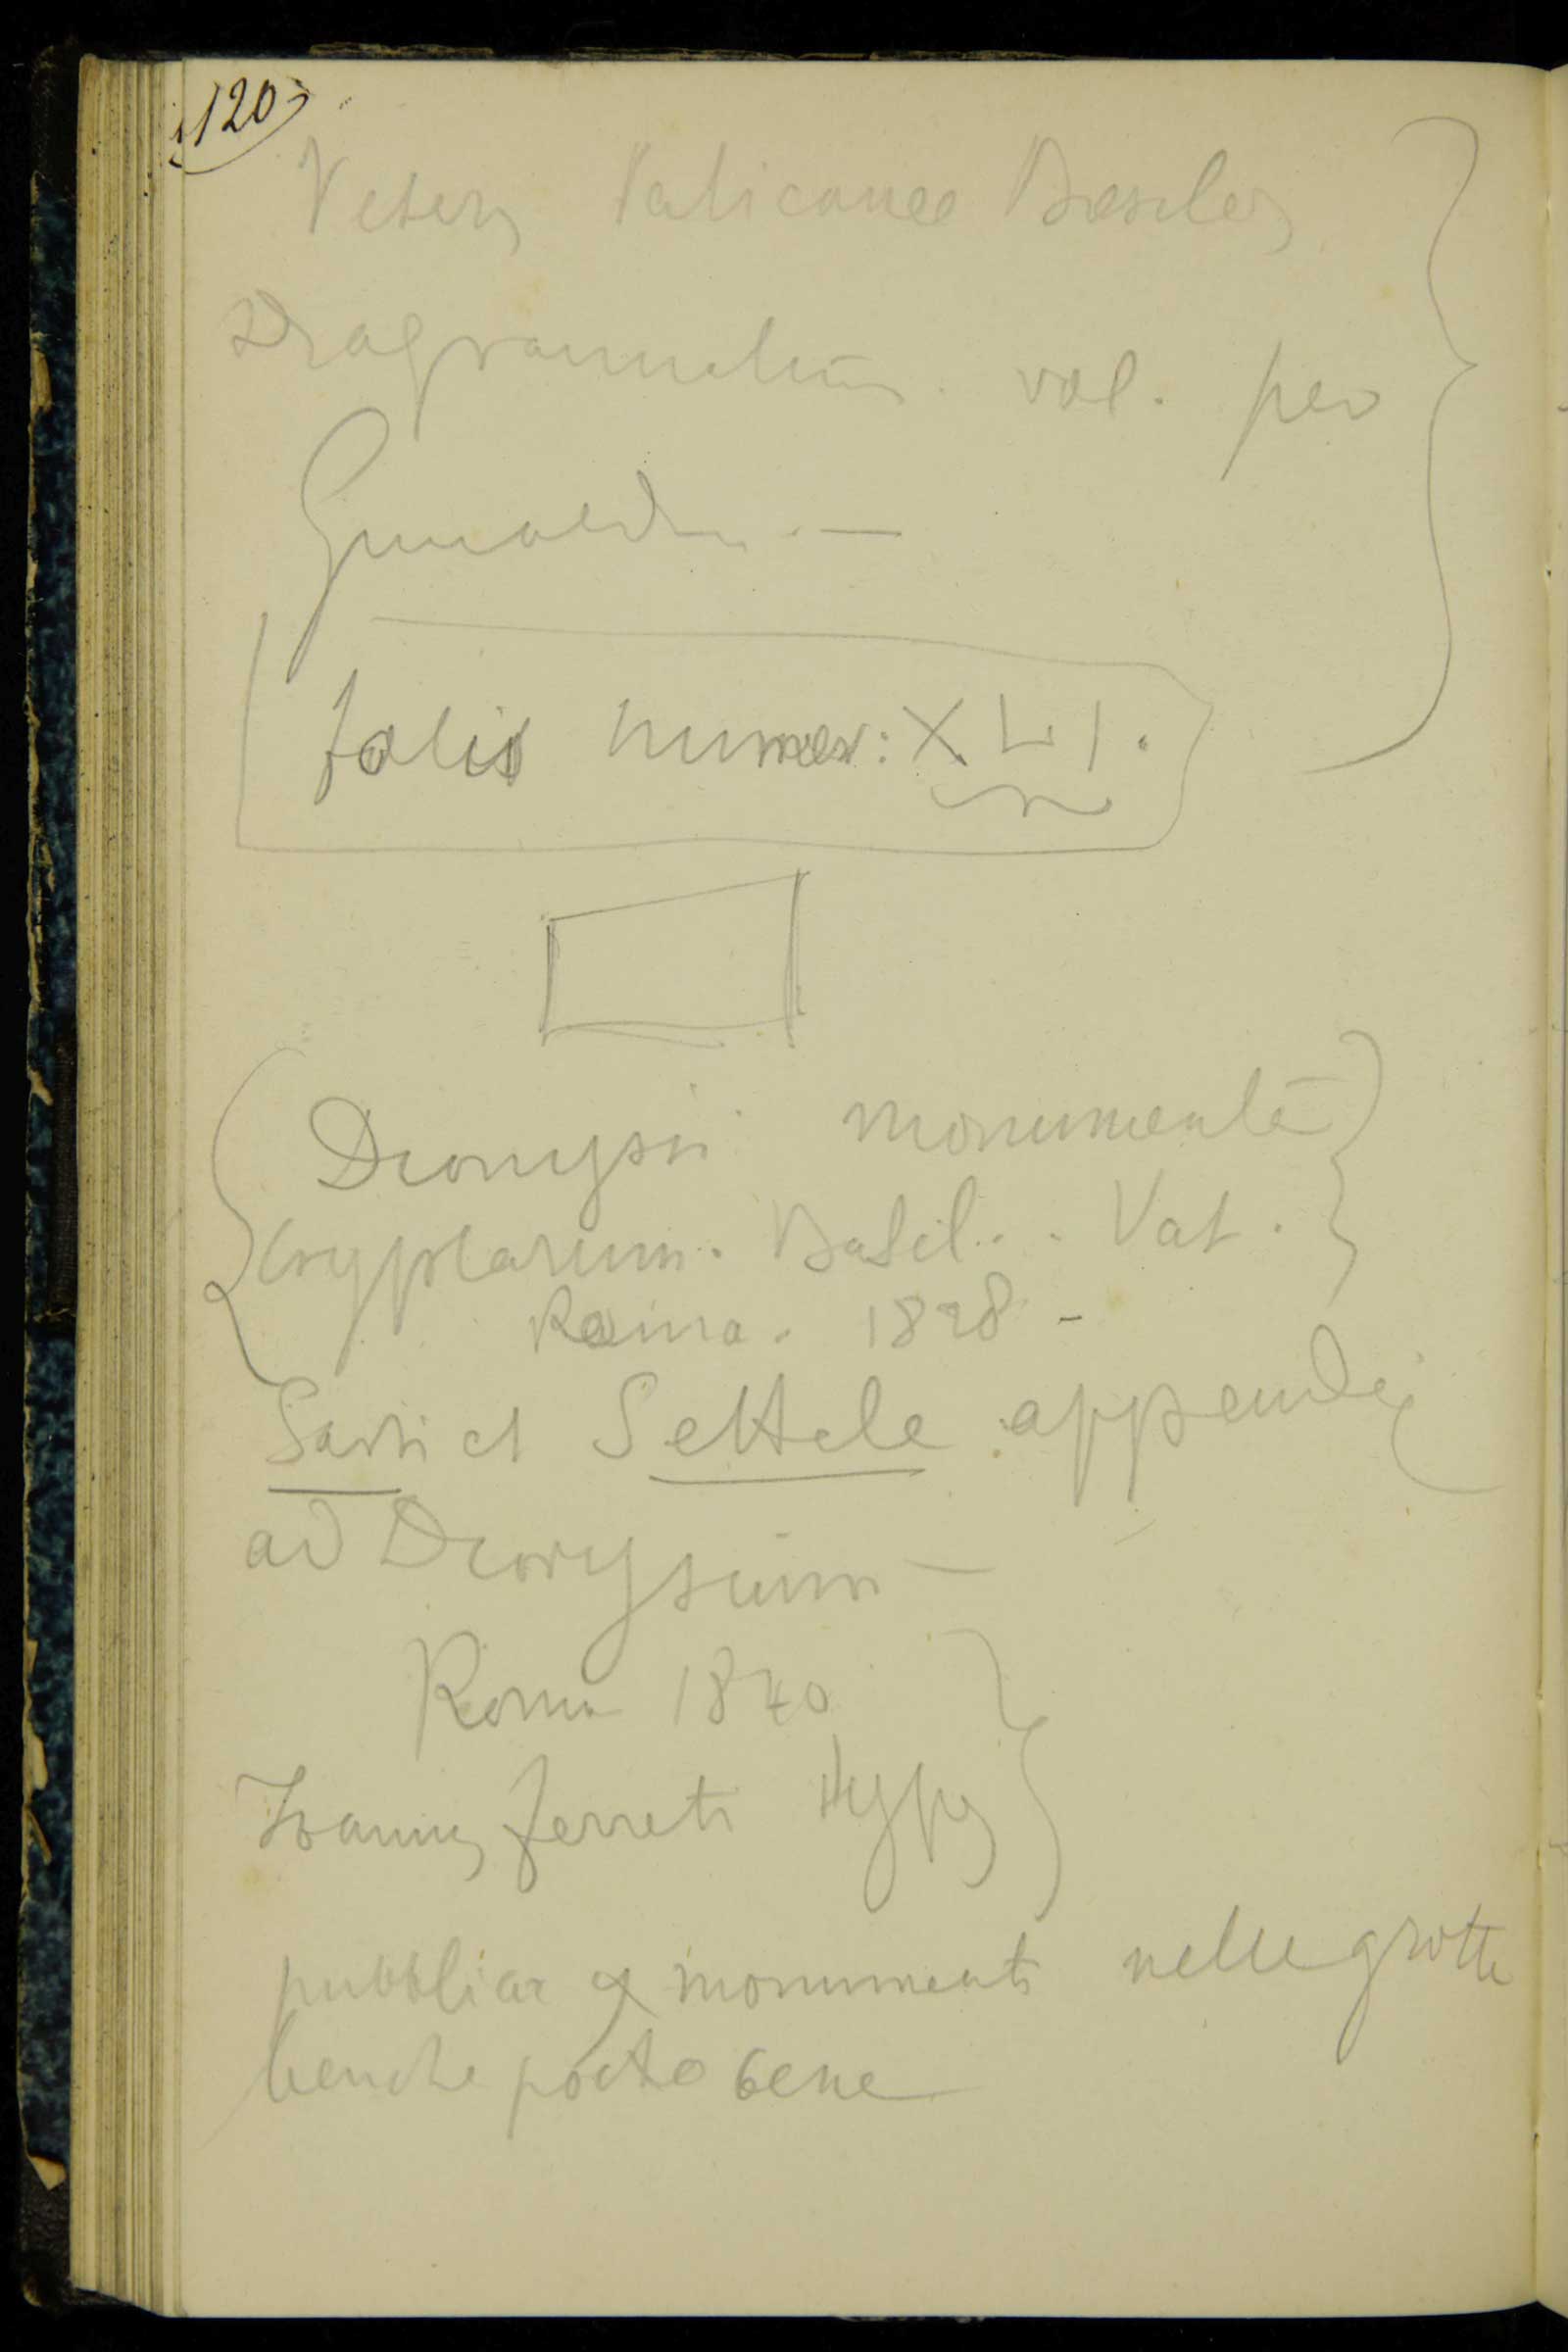 120
Veter Vaticanae Basilen
Diagrammatum. vol. per
Grimaldi. —
folis numer: XLI.
Dionysii monumenta
cryptarum. Basil.. Vat.
Roma. 1828 -
Sarti et Settele appendix
ad Dionysium —
Roma 1840
Ioannes ferreti typ
pubblicar monumenti nelle grotte
benche poche bene